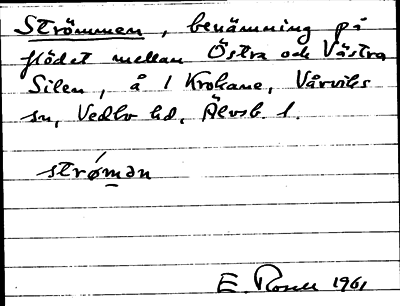 Strömmen, benämning på
flödet mellan Östra och Västra
Silen, å 1 Krokane, Vårviks
sn, Vedbo hd, Älvsb. l.
strǿmən
E. Rosell 1961